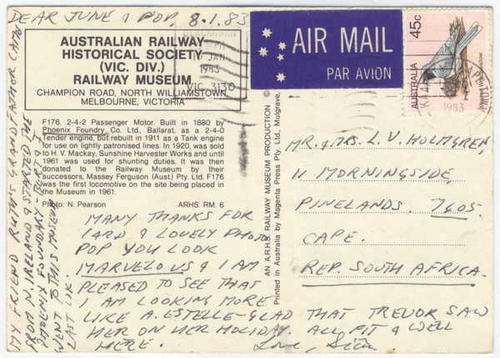 DEAR JUNE & POP. 8.1.83
AUSTRALIAN RAILWAY
HISTORICAL SOCIETY
(VIC. DIV.)
RAILWAY MUSEUM
CHAMPION ROAD, NORTH WILLIAMSTOWN
MELBOURNE, VICTORIA
F176 2-4-2 Passenger Motor. Built in 1880 by
Phoenix Foundry, Co. Ltd, Ballarat. as a 2-4-0
Tender engine, but rebuilt in 1911 as a Tank engine
for use on lightly patronised lines. In 1920, was sold
to H. V. Mackay, Sunshine Harvester Works and until
1961 was used for shunting duties. It was then
donated to the Railway Museum by their
successors, Massey Ferguson (Aust) Pty. Ltd. F176
was the first locomotive on the site being placed in
the Museum in 1961.
Photo: N. Pearson ARHS RM. 6
MANY THANKS FOR
CARD & LOVELY PHOTO
POP YOU LOOK
MARVELOUS & I AM
PLEASED TO SEE THAT
I AM LOOKING MORE
LIKE A. ESTELLE - GLAD THAT TREVOR SAW
HER ON HER HOLIDAY. ALL FIT & WELL
HERE. Love,
MY FRIEND RON'S GRANDFATHER CAME
FROM IRELAND & STARTED THE
PHOENIX FOUNDRY - BERT & I
WENT TO THIS MUSEUM
LAST
AN A.R.H.S. RAILWAY MUSEUM PRODUCTION ©
Printed in Australia by Magenta Press Pty Ltd, Mulgrave.
AIR MAIL
PAR AVION
AUSTRALIA
45c
1983
3130
1983
MR. & MRS. L. V. HOLMGREN
11 MORNINGSIDE,
PINELANDS. 7405.
CAPE.
REP. SOUTH AFRICA.